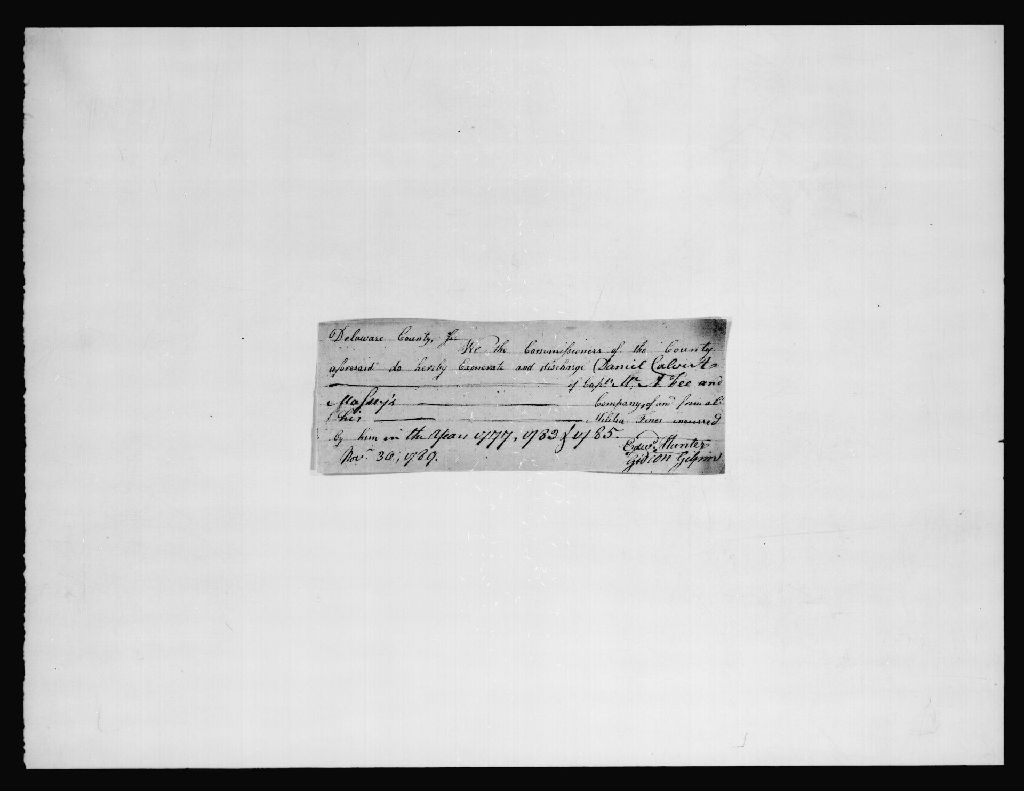 Delaware County, ss
We the Commissioners of the County
aforesaid do hereby Exonerate and discharge Daniel Calvert
of Capt.
and
Massey's Company, of and from all
his Militia Fines incurred
by him in the Years 1777, 1783 & 1785
Edwd. Hunter
Novr. 30, 1789. Gideon Gilpin